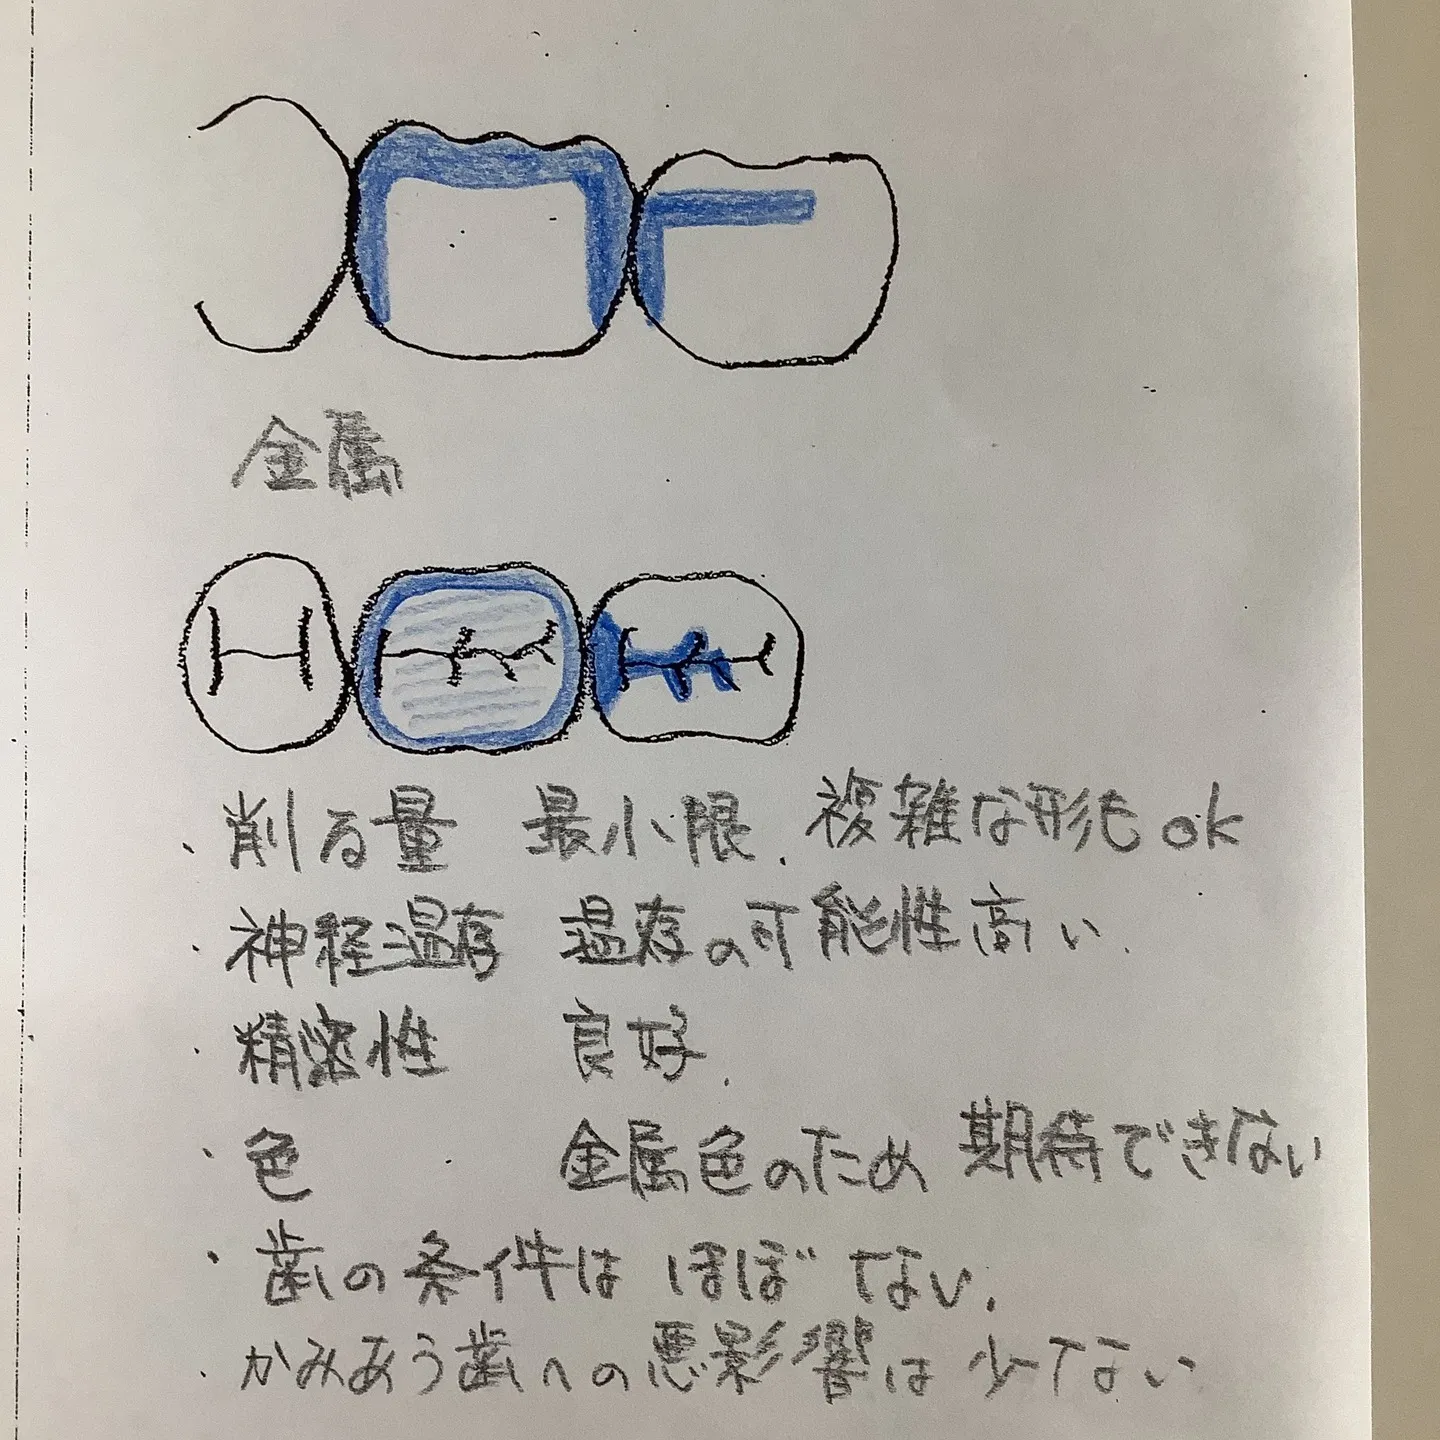 金属
・削る量 最小限. 複雑な形もok
・神経温存 温存の可能性高い.
・精密性 良好.
・色 金属色のため 期待できない
・歯の条件は ほぼ ない.
・かみあう歯への悪影響は 少ない